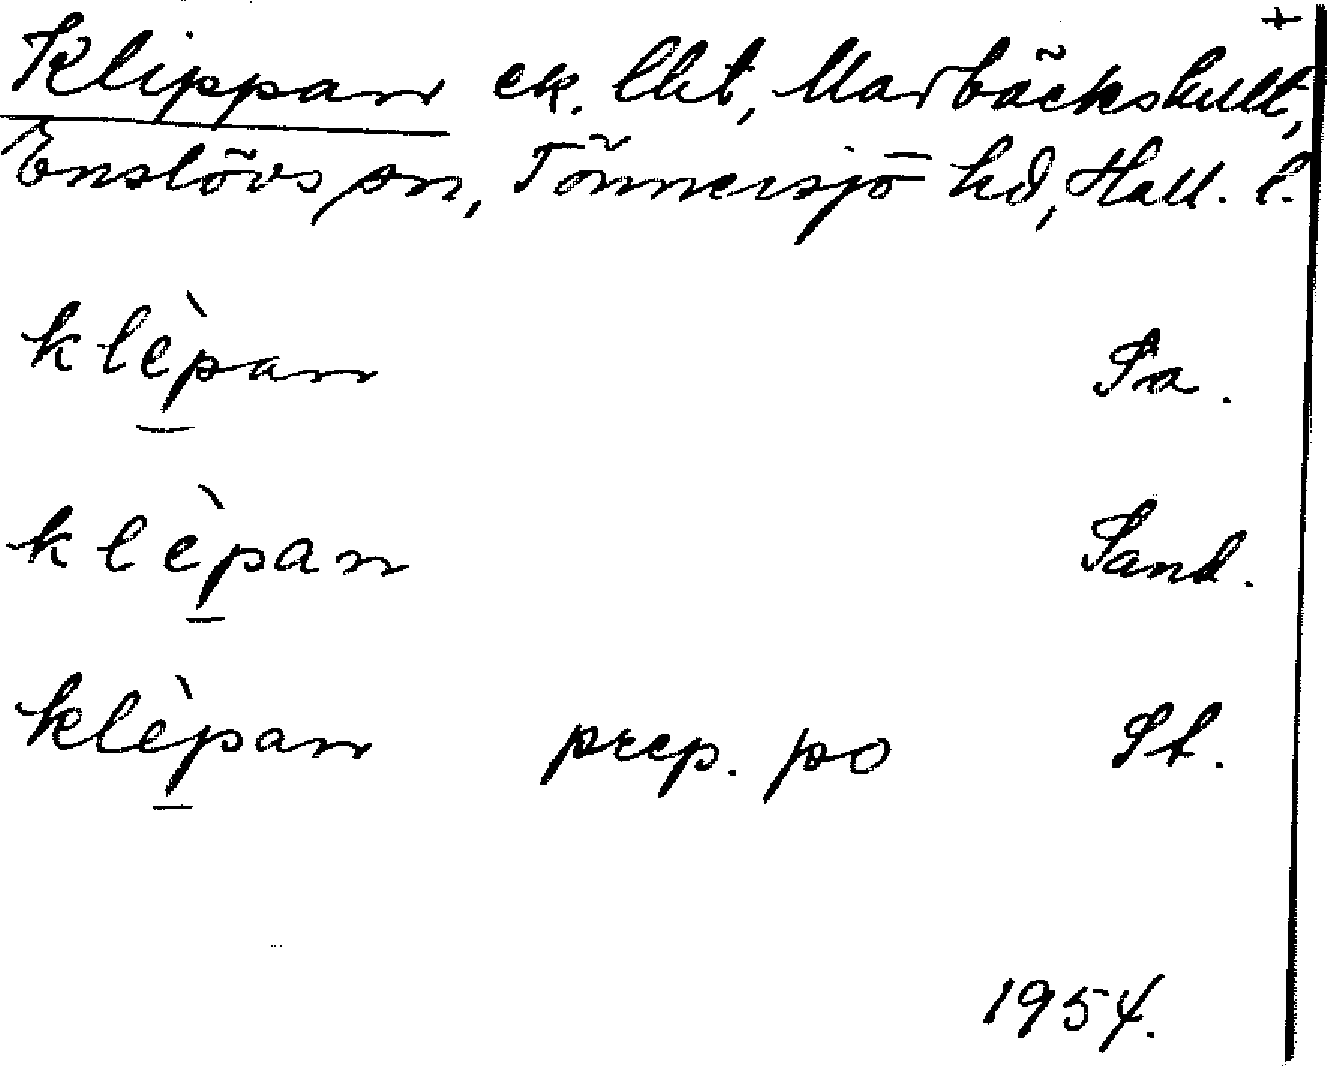 +
Klippan ek. lht, Marbäckskult,
Enslövs sn, Tönnersjö hd, Hall. l.
klèpan Sa.
klèpan Sand.
klèpan prep. po St.
1954.